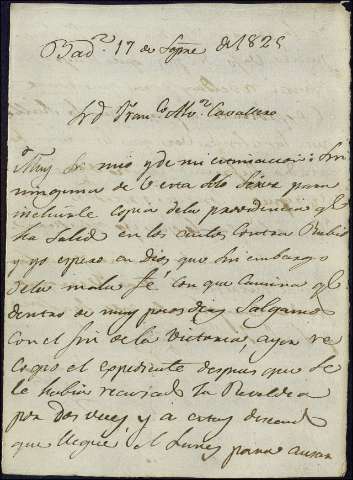 Bad.z 17 de Sbre de 1825
Sr d Fran.co Mo.r Cavallero
Muy Sr mio y de mi estimacion: Sin
ninguna de V. esta solo sirve para
incluirle copia de la providencia q.e
ha salido en los autos contra Rubio
y yo espero en Dios, que sin embargo
de la mala fé con que camina q.e
dentro de muy pocos dias Salgamos
con el fin de la Victoria, ayer re
cogio el espediente despues que se
le habia recusado la Revaldia
por dos veces y a estas
que llegue el Lunes para